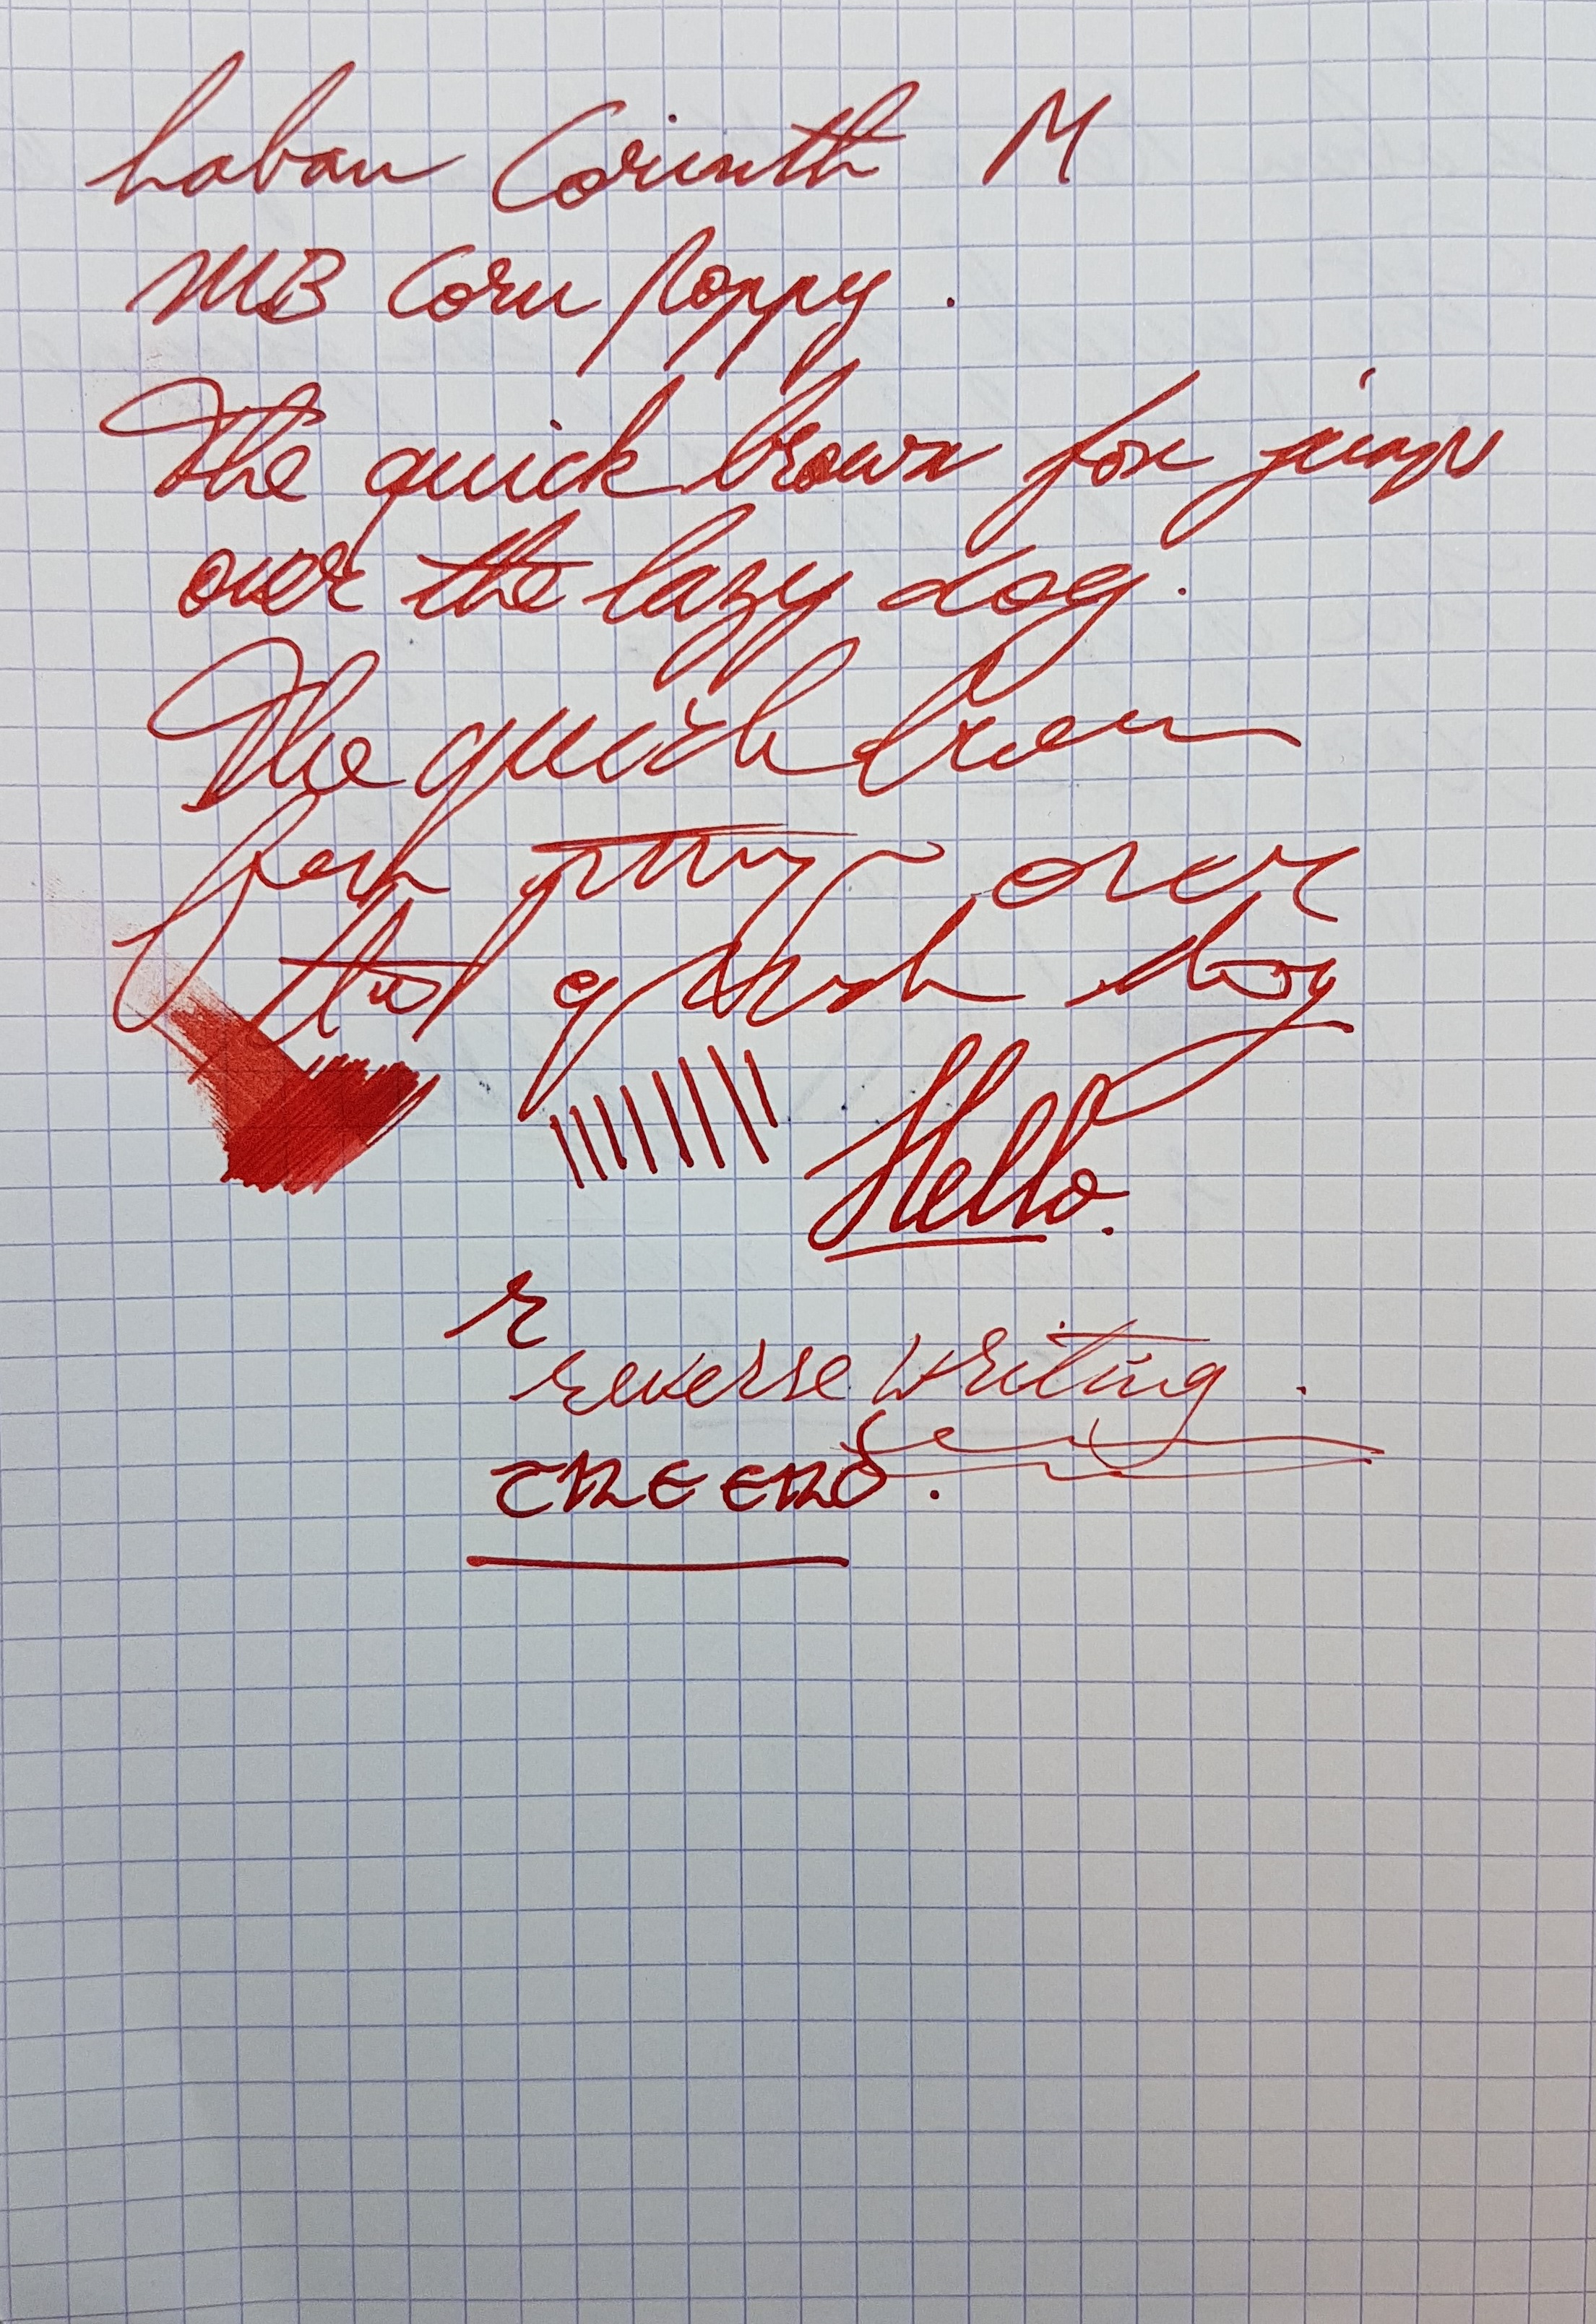 Laban Corinth M
MB Corn Poppy.
The quick brown fox jumps
over the lazy dog.
The quick brown
over
Hello.
r
reverse writing.
THE END.